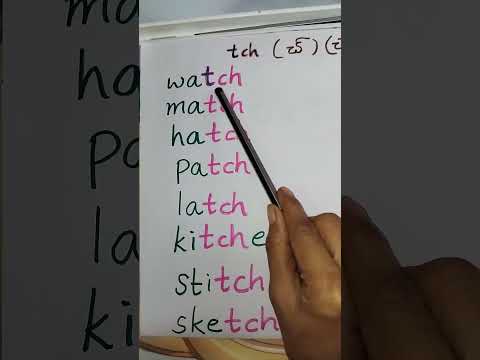 tch
watch
match
hatch
patch
latch
kitche
stitch
sketch